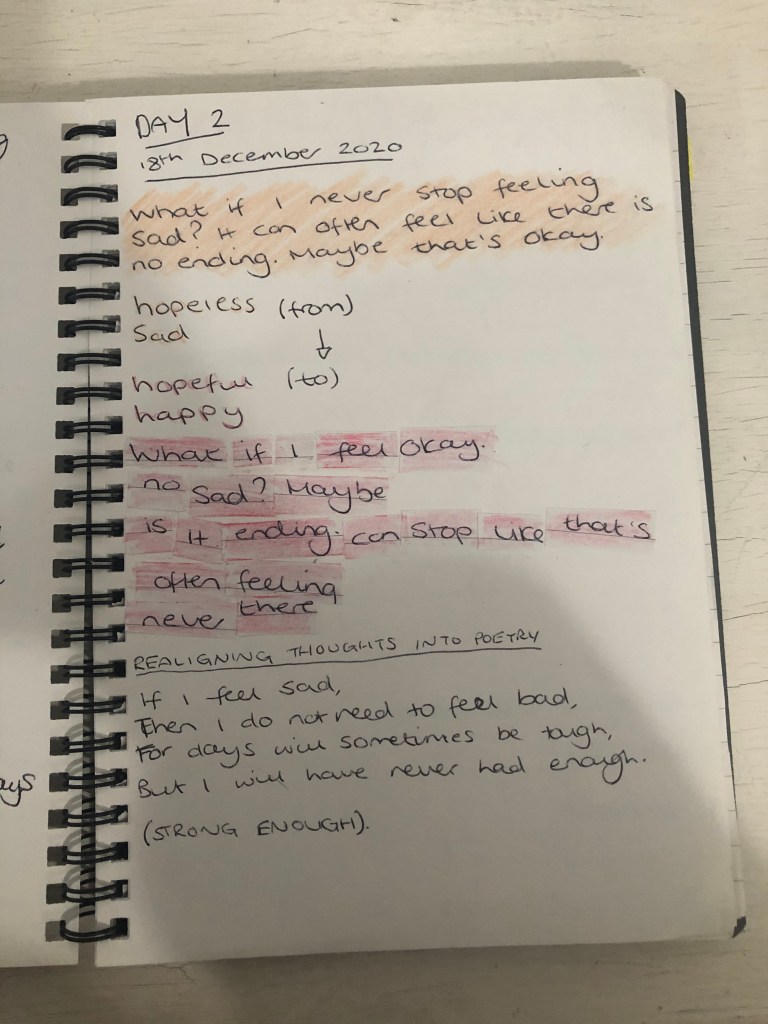 DAY 2
18th December 2020
What if I never stop feeling
sad? It can often feel like there is
no ending. Maybe that's okay.
hopeless (from)
sad
↓
hopeful (to)
happy
What if I feel okay.
no sad? Maybe
is it ending. can stop like that's
often feeling
never there
REALIGNING THOUGHTS INTO POETRY
If I feel sad,
Then I do not need to feel bad,
For days will sometimes be tough,
But I will have never had enough.
(STRONG ENOUGH).
ays